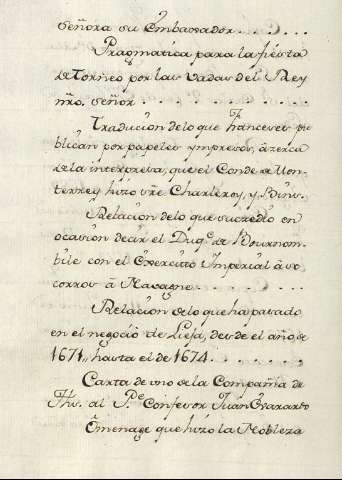 Señora su Embaxador.......
Pragmatica para la fiesta
de Torneo por las vodas del Rey
nro. Señor..........
Traducion de lo que franceses pu
blican por papeles ympresos, àzerca
de la interpresa, que el Conde de Mon-
terrey hizo sre Charleroy, y Bins.
Relacion de lo que sucedio en
ocasion de ir el Duq.e de Bournom-
bile con el Exercito Imperial à so
corros à
Relacion de lo que ha pasado
en el negocio de Lieja, desde el año de
1671,, hasta el de 1674.......
Carta de vno de la Compañia de
Jhs. al P.e Confesor Juan Evarardo
Omenage que hizo la Nobleza